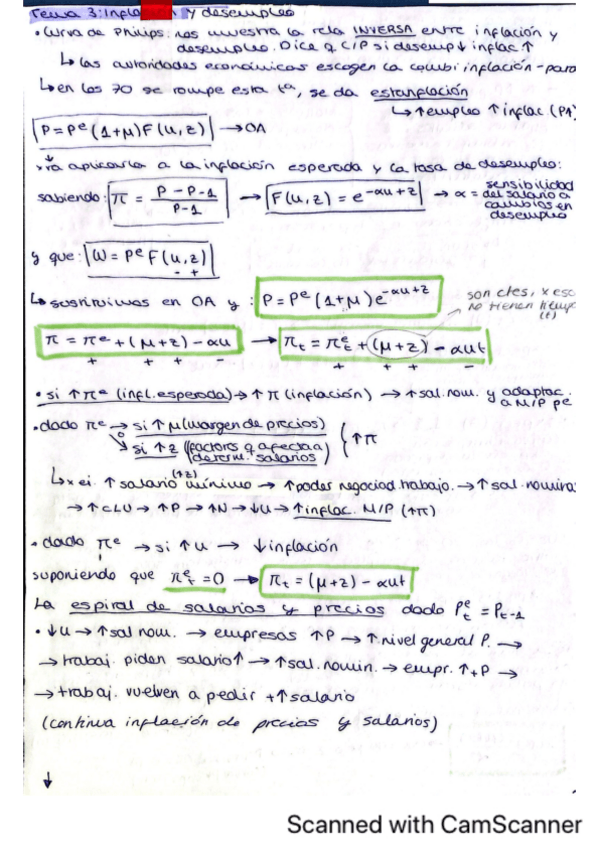 Tema 3: Inflación y desempleo
• Curva de Philips: nos muestra la relª INVERSA entre inflación y
desempleo. Dice q C/P si desemp↓ inflac.↑
↳ las autoridades económicas escogen la combi inflación-paro
↳ en los 70 se rompe esta rª, se da estanflación
↳ ↑empleo ↑inflac. (P1)
P = Pᵉ(1+μ)F(u,z) → OA
↓
va aplicarlo a la inflación esperada y la tasa de desempleo:
sabiendo: π = (P - P-1) / P-1 → F(u,z) = e^(-αu+z) → α = sensibilidad del salario a cambios en desempleo
y que: W = Pᵉ F(u,z)
- +
↳ sustituimos en OA y: P = Pᵉ(1+μ)e^(-αu+z)
son ctes, x eso no tienen tiempo (t)
π = πᵉ + (μ+z) - αu → πt = πᵉt + (μ+z) - αut
+ + + - + + + -
• si ↑πᵉ (infl. esperada) → ↑π (inflación) → ↑sal. nom. y adaptac. a M/P pe
• dado πᵉ → si ↑μ (margen de precios)
o
↘ si ↑z (factores q afectan a determ. salarios) } ↑π
(↑z)
↳ x ej. ↑ salario mínimo → ↑poder negociad. trabajo. → ↑ sal. nomina
→ ↑CLU → ↑P → ↑N → ↓u → ↑inflac. M/P (↑π)
• dado πᵉ → si ↑u → ↓inflación
suponiendo que πᵉt = 0 → πt = (μ+z) - αut
La espiral de salarios y precios dado Pᵉt = Pt-1
• ↓u → ↑sal nom. → empresas ↑P → ↑nivel general P. →
→ trabaj. piden salario↑ → ↑sal. nomin. → empr. ↑+P →
→ trabaj. vuelven a pedir +↑salario
(continua inflación de precios y salarios)
↓
Scanned with CamScanner